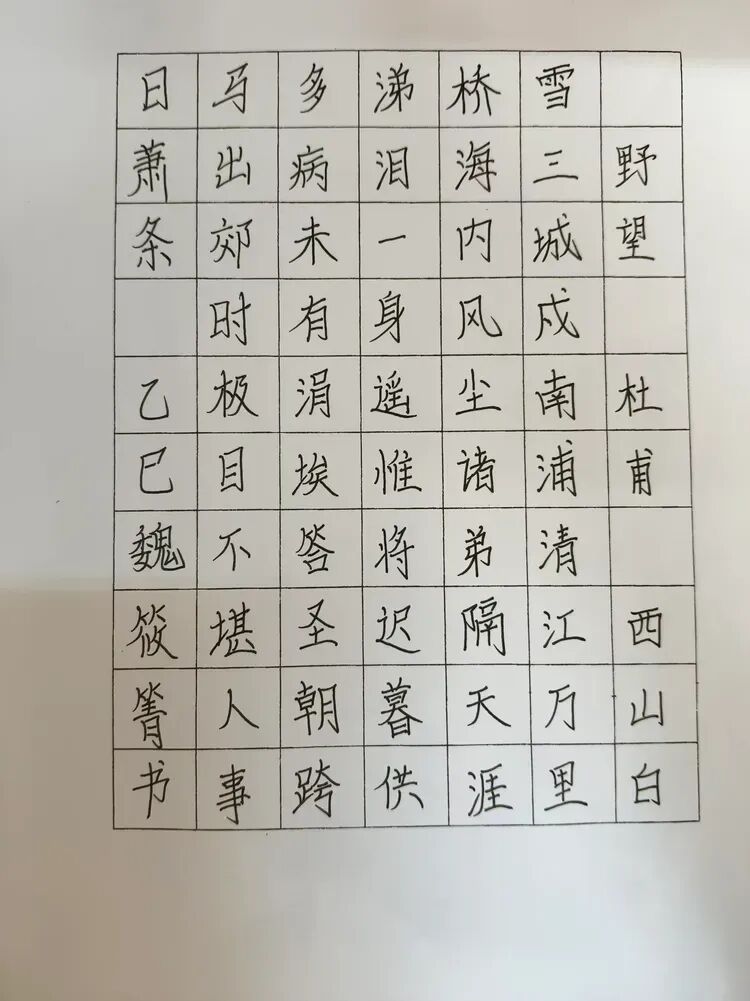 野望 杜甫 西山白
雪三城戍南浦清江万里
桥海内风尘诸弟隔天涯
涕泪一身遥惟将迟暮供
多病未有涓埃答圣朝跨
马出郊时极目不堪人事
日萧条 乙巳魏筱箐书